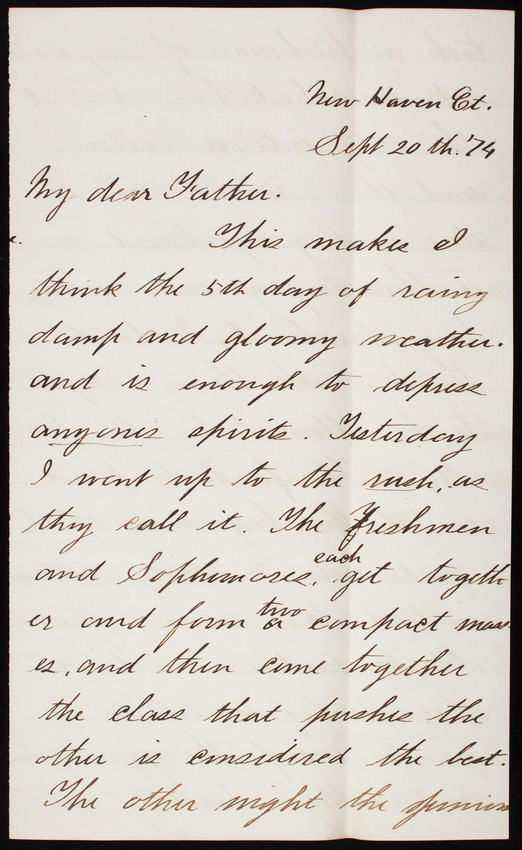 New Haven Ct.
Sept 20th. '74
My dear Father.
This makes I
think the 5th day of rainy
damp and gloomy weather.
and is enough to depress
anyones spirits. Yesterday
I went up to the rush, as
they call it. The Freshmen
and Sophomores, each get togeth
er and form two compact mass
es, and then come together
the class that pushes the
other is considered the best.
The other night the